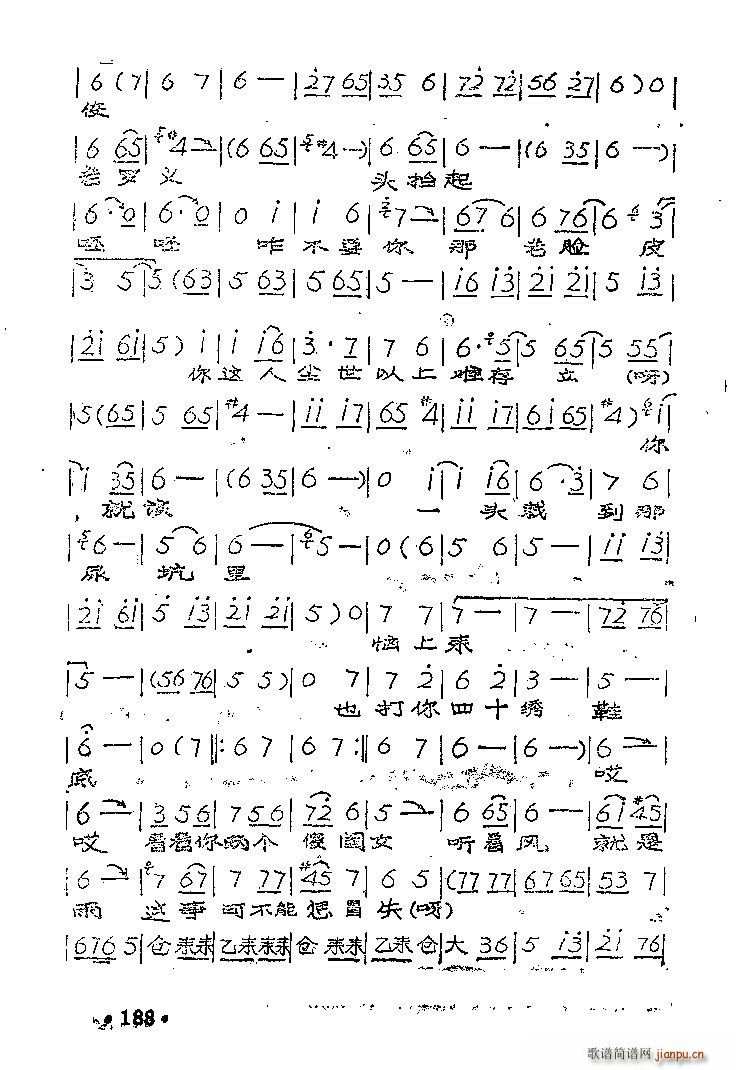 |6(7|6 7|6—|27 65|35 6|72 72|56 27|6)0|
俊
|6 65|4—|(6 65|4—)|6 65|6—|(6 35|6—)|
老罗义 头抬起
|6·0|6·0|0 i|i 6|7—|67 6|6 76|6 3|
呸 呸 咋不要你那老脸皮
|3 5|5(63|5 63|5 65|5—|i6 i3|2i 2i|5 i3|
|2i 6i|5) i|i i6|3·7|7 6|6·5|5 65|5 55|
你这人尘世以上难存立(呀)
|5(65|5 65|4—|ii i7|65 4|ii i7|6i 65|4) i|
你
|i 35|6—|(6 35|6—)|0 i|i i6|6·3|7 6|
就该 一头栽到那
|6—|5 6|6—|5—|0(6|5 6|5—|ii i3|
尿坑里
|2i 6i|5 i3|2i 2i|5)0|7 7|7—|7—|72 76|
恼上来
|5—|(56 76|5 5)|0 7|7 2|6 2|3—|5—|
也打你四十绣鞋
|6—|0(7‖:6 7|6 7:‖6 7|6—|6—)|6—|
底 哎
|6—|3 56|7 56|72 6|5—|6 65|6—|6i 45|
哎 看着你两个俊闺女 听着风 就是
|6—|7 67|7 77|45 7|6 5|(77 77|67 65|53 7|
雨 这事可不能想冒失(呀)
|676 5|仓 来来|乙来来来|仓 来来|乙来 仓|大 36|5 i3|2i 76|
• 188 •
歌谱简谱网 jianpu.cn